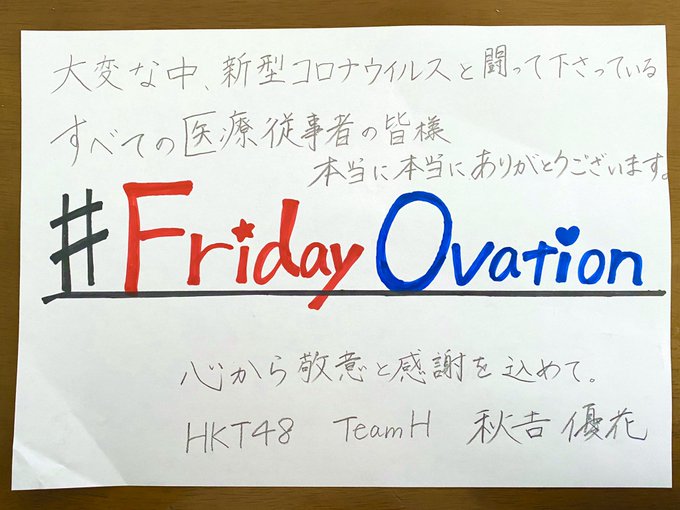 大変な中、新型コロナウイルスと闘って下さっている
すべての医療従事者の皆様
本当に本当にありがとうございます。
#Friday Ovation
心から敬意と感謝を込めて。
HKT48 TeamH 秋吉優花